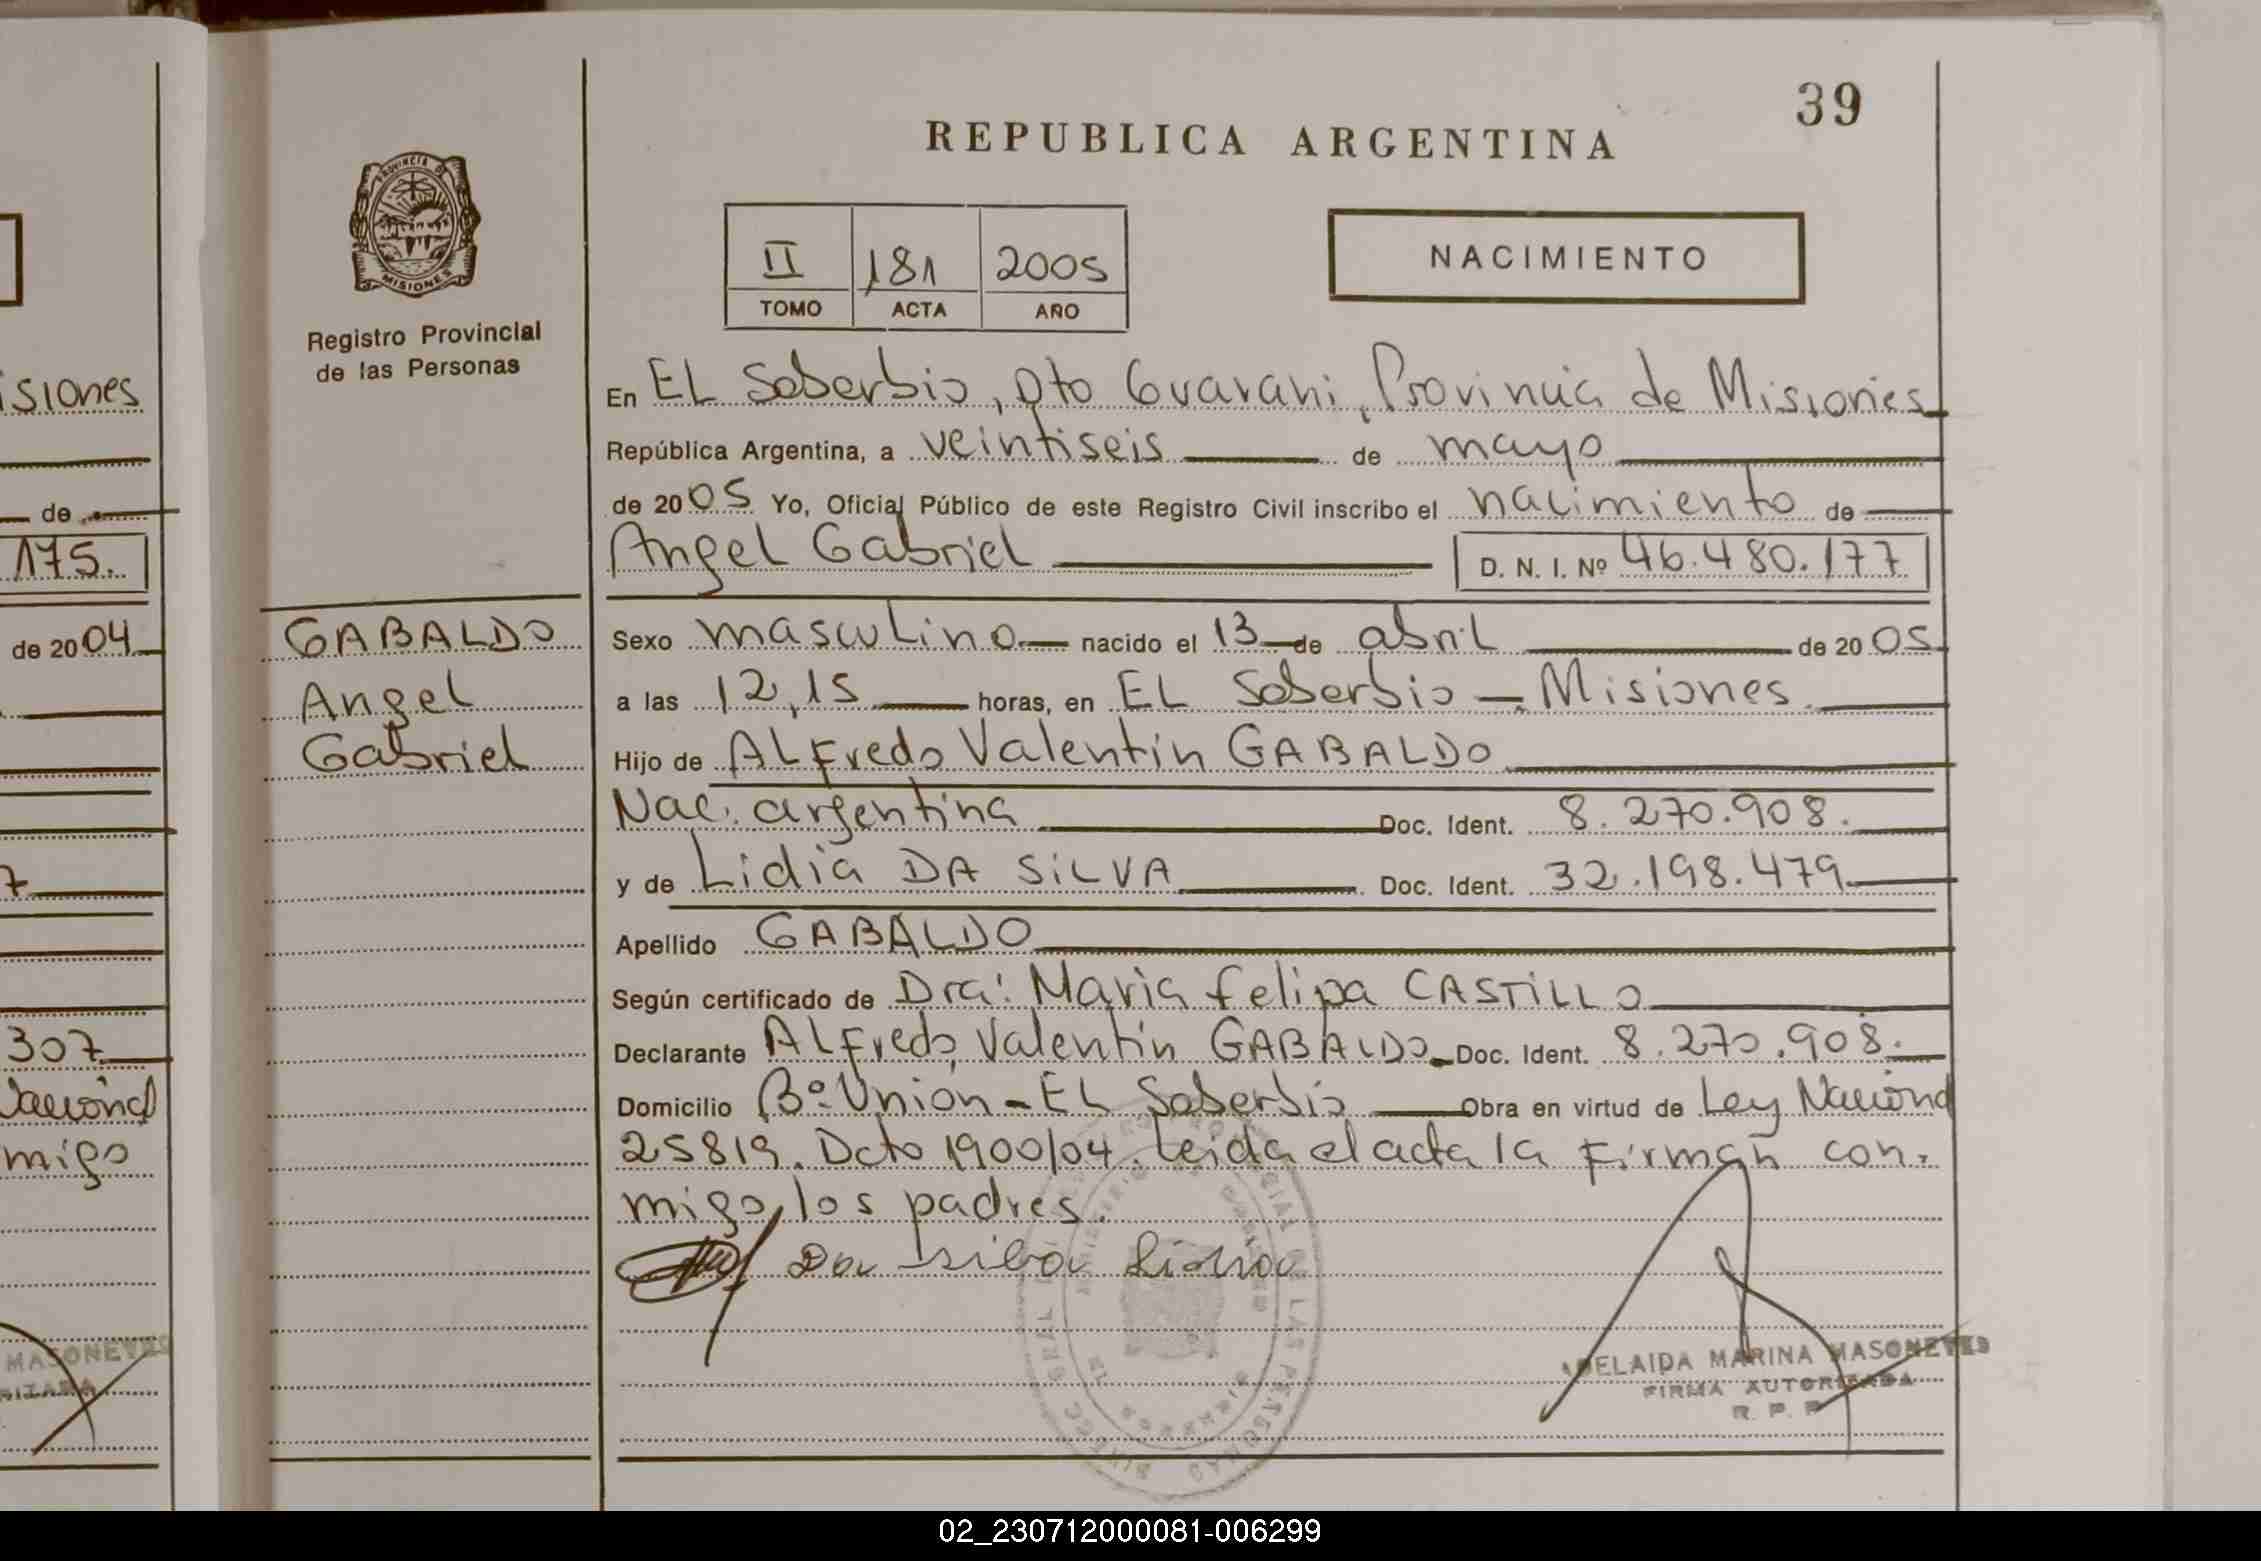 39
REPUBLICA ARGENTINA
PROVINCIA DE
MISIONES
Registro Provincial
de las Personas
II 181 2005
TOMO ACTA AÑO
NACIMIENTO
En EL Soberbio, Dto Guarani, Provincia de Misiones
República Argentina, a veintiseis de mayo
de 2005 Yo, Oficial Público de este Registro Civil inscribo el nacimiento de
Angel Gabriel D. N. I. Nº 46.480.177
GABALDO
Angel
Gabriel
Sexo masculino nacido el 13 de abril de 2005
a las 12,15 horas, en EL Soberbio - Misiones
Hijo de ALFredo Valentín GABALDO
Nac. argentina Doc. Ident. 8.270.908.
y de Lidia DA SiLVA Doc. Ident. 32.198.479
Apellido GABALDO
Según certificado de Dra: Maria Felipa CASTILLO
Declarante ALFredo Valentín GABALDO Doc. Ident. 8.270.908.
Domicilio Bº Unión - EL Soberbio Obra en virtud de Ley Nacional
25819. Dcto 1900/04. Leida el acta la Firman con.
migo, los padres.
Da Silva Lidia
ADELAIDA MARINA MASONEVES
FIRMA AUTORIZADA
R. P. P.
isiones
de
175.
de 2004
7
307
Nacional
migo
MASONEVES
02_230712000081-006299